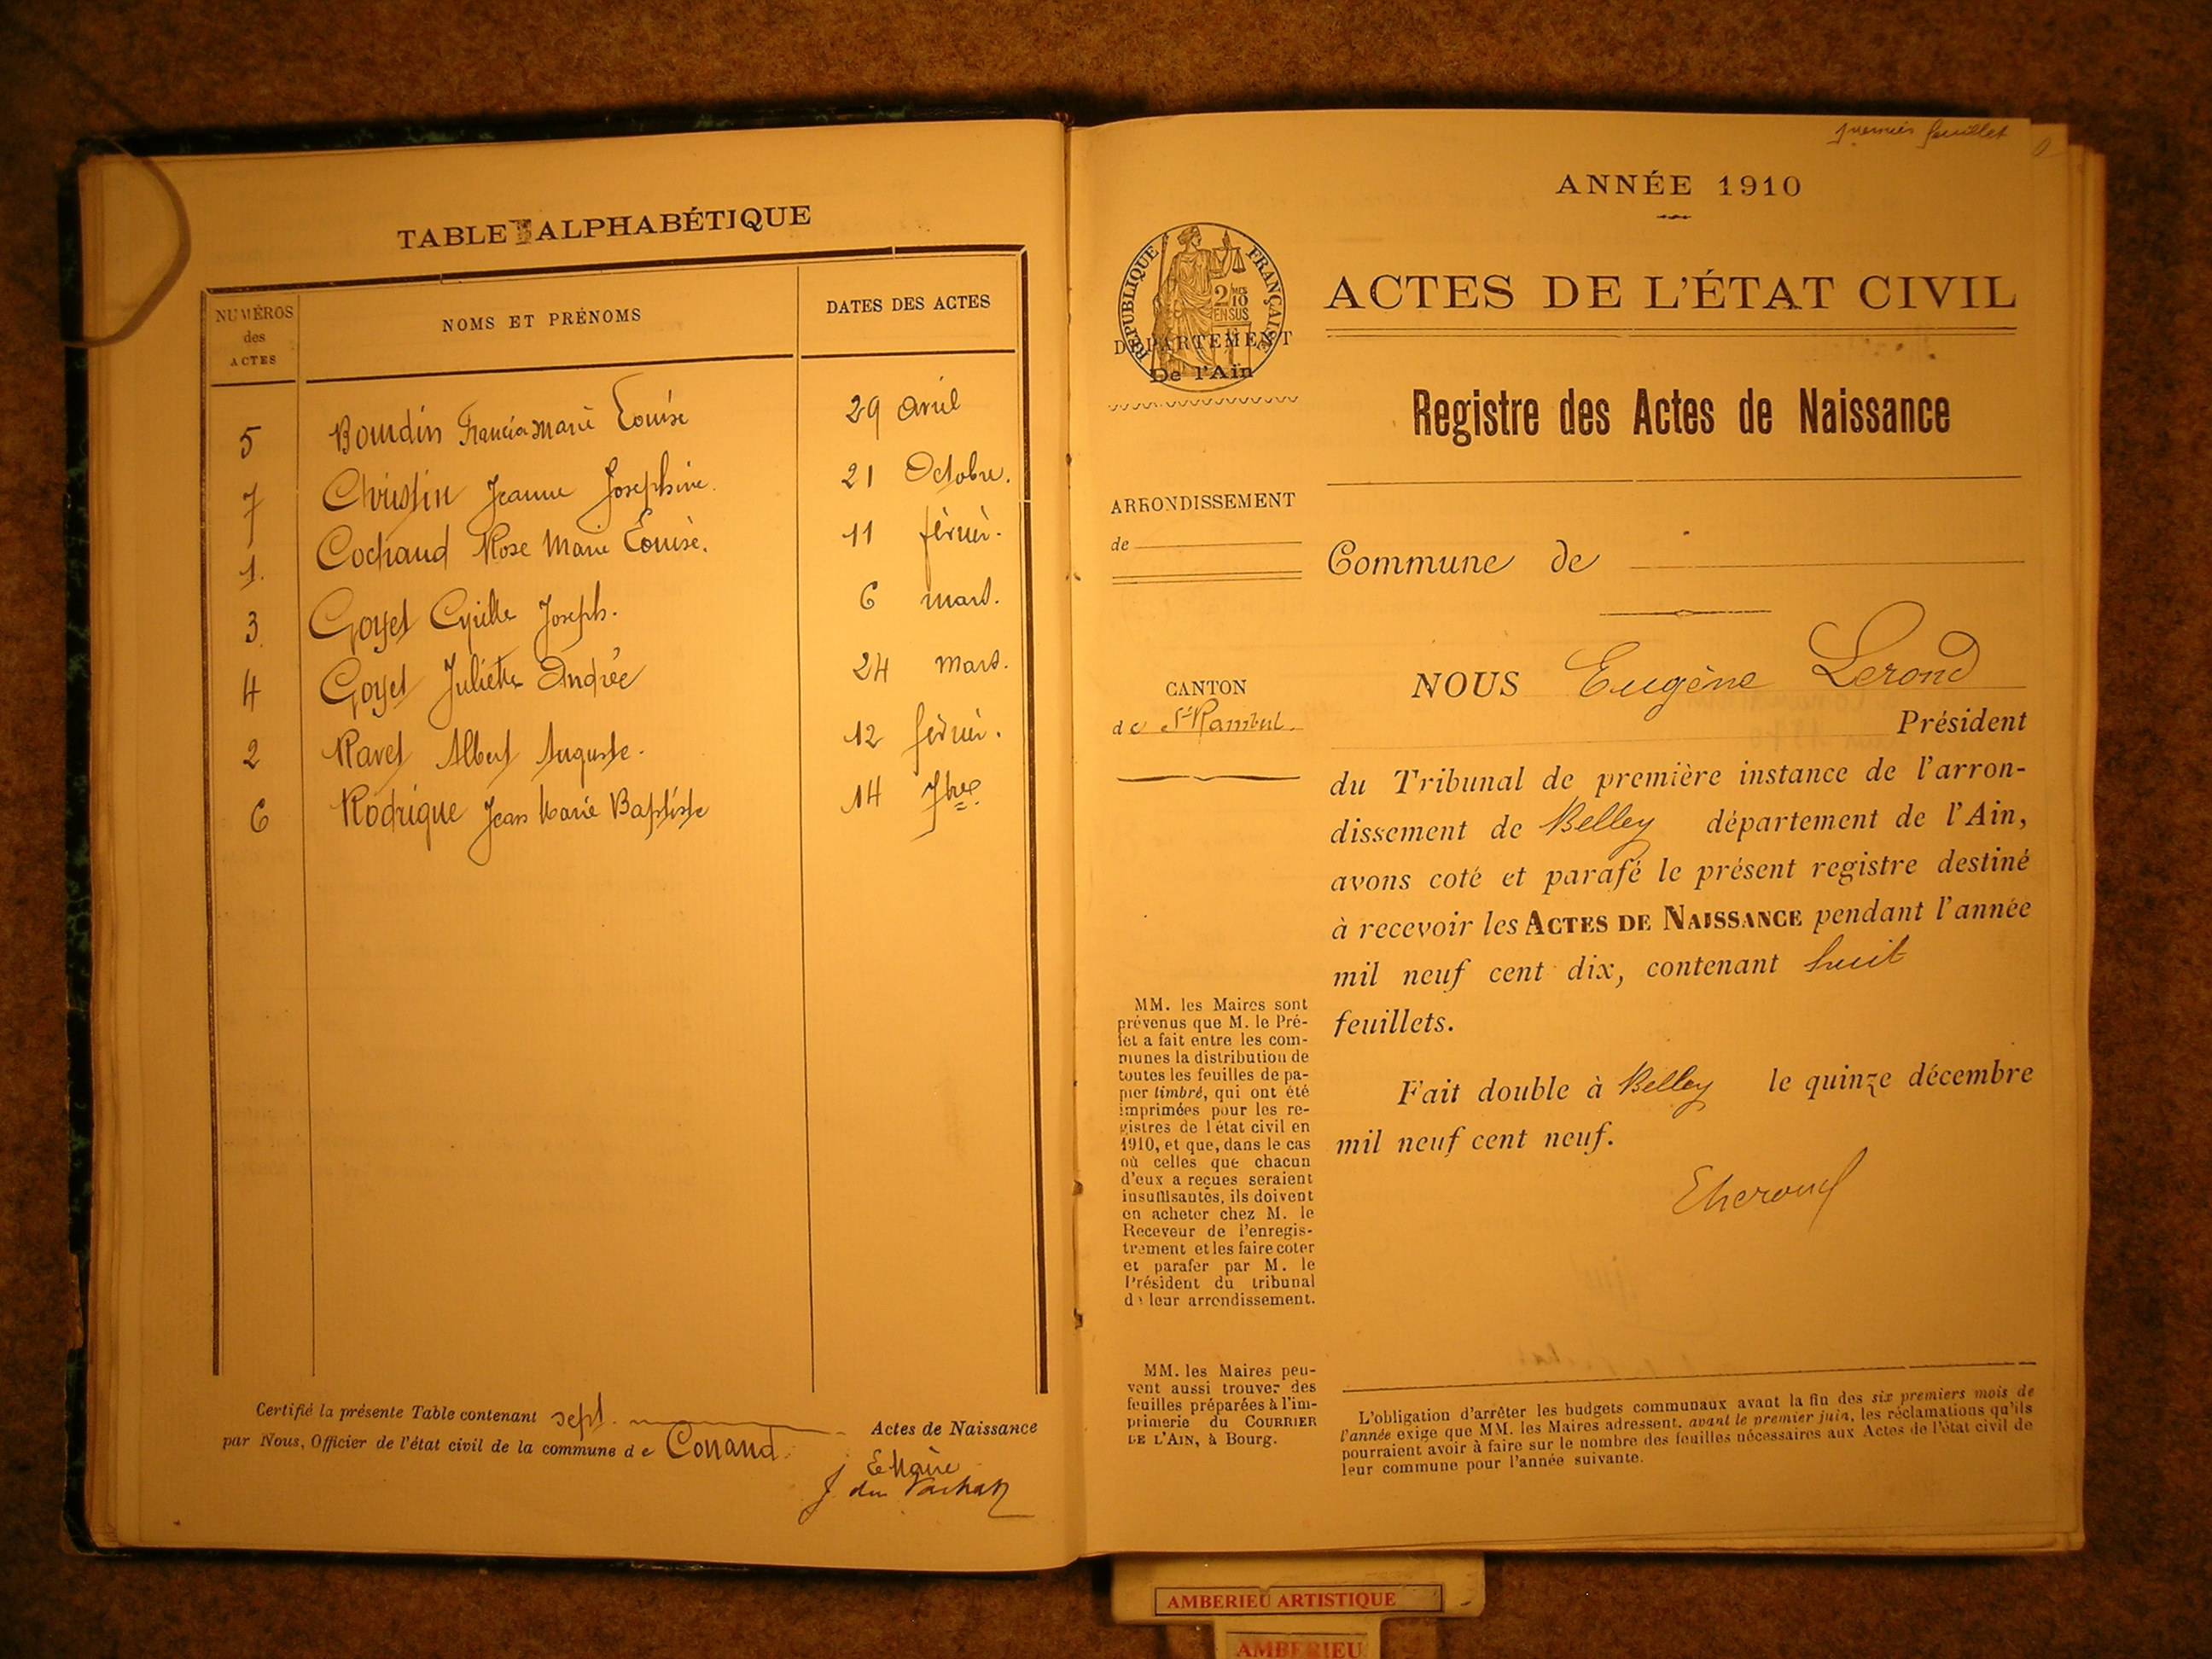 TABLE ALPHABÉTIQUE
NUMÉROS
des
ACTES
NOMS ET PRÉNOMS
DATES DES ACTES
5 Bourdin Francia Marie Louise 29 avril
7 Christin Jeanne Joséphine. 21 Octobre.
1. Cochaud Rose Marie Louise. 11 février.
3. Goyet Cyrille Joseph. 6 mars.
4 Goyet Juliette Andrée 24 mars.
2 Ravet Albert Auguste. 12 février.
6 Rodrigue Jean Marie Baptiste 14 7bre
Certifié la présente Table contenant sept. Actes de Naissance
par Nous, Officier de l'état civil de la commune de Conand.
Le Maire
premier feuillet
ANNÉE 1910
RÉPUBLIQUE FRANÇAISE
2/10
EN SUS
DÉPARTEMENT
De l'Ain
ACTES DE L'ÉTAT CIVIL
Registre des Actes de Naissance
ARRONDISSEMENT
de
Commune de
CANTON
de St Rambert.
NOUS Eugène Lerond
Président
du Tribunal de première instance de l'arron-
dissement de Belley département de l'Ain,
avons coté et parafé le présent registre destiné
à recevoir les ACTES DE NAISSANCE pendant l'année
mil neuf cent dix, contenant huit
feuillets.
Fait double à Belley le quinze décembre
mil neuf cent neuf.
ELerond
MM. les Maires sont
prévenus que M. le Pré-
fet a fait entre les com-
munes la distribution de
toutes les feuilles de pa-
pier timbré, qui ont été
imprimées pour les re-
gistres de l'état civil en
1910, et que, dans le cas
où celles que chacun
d'eux a reçues seraient
insuffisantes, ils doivent
en acheter chez M. le
Receveur de l'enregis-
trement et les faire coter
et parafer par M. le
Président du tribunal
de leur arrondissement.
MM. les Maires peu-
vent aussi trouver des
feuilles préparées à l'im-
primerie du COURRIER
DE L'AIN, à Bourg.
L'obligation d'arrêter les budgets communaux avant la fin des six premiers mois de
l'année exige que MM. les Maires adressent, avant le premier juin, les réclamations qu'ils
pourraient avoir à faire sur le nombre des feuilles nécessaires aux Actes de l'état civil de
leur commune pour l'année suivante.
AMBERIEU ARTISTIQUE
AMBERIEU